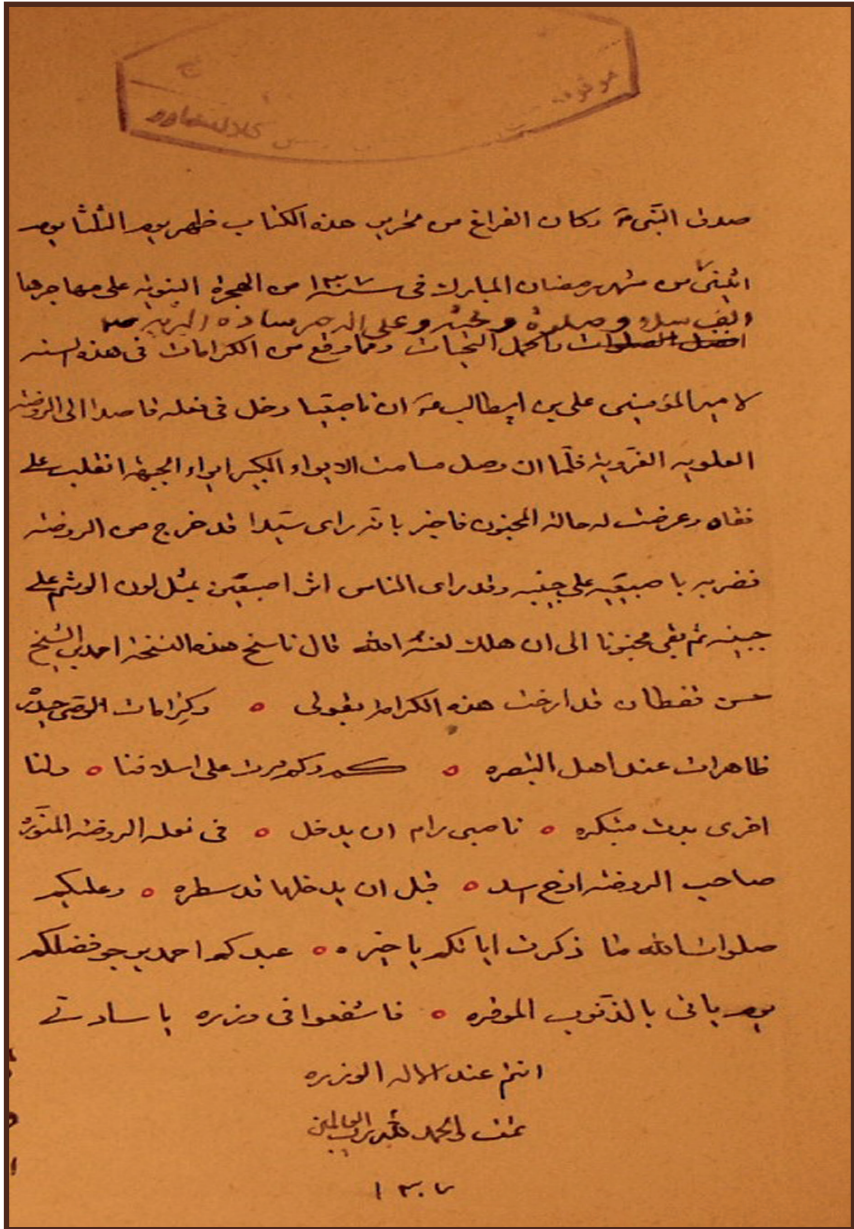 موقوفة
صدق النبي ص وكان الفراغ من تحرير هذه الكتاب ظهر يوم الثلثا يوم
اثنى من شهر رمضان المبارك في سنة ١٣٠٧ من الهجرة النبويه على مهاجرها
الف سلام وصلوة وتحيه وعلى اله خير سادة البريه
افضل الصلوات واكمل التحيات ومما وقع من الكرامات في هذه السنه
لامير المؤمنين علي بن ابيطالب ع ان ناصبيا دخل في نعله قاصدا الى الروضه
العلويه الغرويه فلما ان وصل مسامت الايواء الكبير ايواء الجبهه انقلب على
قفاه وعرضت له حالة المجنون فاخبر بانه راى سيدا قد خرج من الروضه
فضربه باصبعيه على جبينه وقد راى الناس اثر اصبعين بمثل لون الوشم على
جبينه ثم بقى مجنونا الى ان هلك لعنه الله قال ناسخ هذه النسخة احمد بن الشيخ
حسن قفطان قد ارخت هذه الكرامه بقولي ه وكرامات الوصي حيدر
ظاهرات عند اهل التبصره ه كم وكم مرت على اسلافنا ه ولنا
اخرى بدت مبتكره ه ناصبي رام ان يدخل ه في نعله الروضة المنوره
صاحب الروضه ارخ اسد ه قبل ان يدخلها قد سطره ه وعليكم
صلوات الله ما ذكرت اياتكم يا خيره ه عبدكم احمد يرجو فضلكم
يوم ياتى بالذنوب الموقره ه فاشفعوا في وزره يا سادتي
انتم عند الاله الوزره
تمت والحمد لله رب العالمين
١٣٠٧